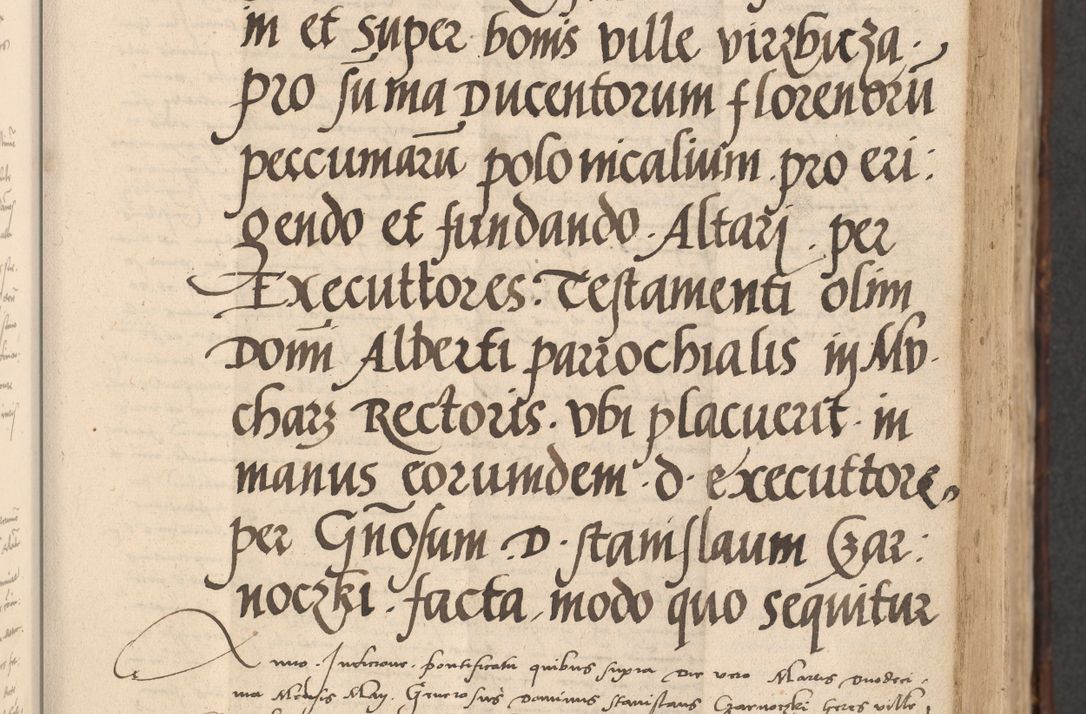 in et super bonis ville virzbicza ·
pro sūma Ducentorum florenorū
peccumarū polonicalium pro eri:
gendo et fundando · Altarj · per
Executtores · Testamenti olim
Domī Alberti parrochialis in Mv·
charz Rectoris · vbi placuerit · in
manus eorumdem · d · executtore
per Gñosum · D · stanislaum Czar:
noczki · facta modo quo sequitur
Anno · Indictione · pontificatu quibus supra Die vero Martis Duodeci·
ma Mensis Maij Generosus Dominus stanislaus Czarnoczki heres ville